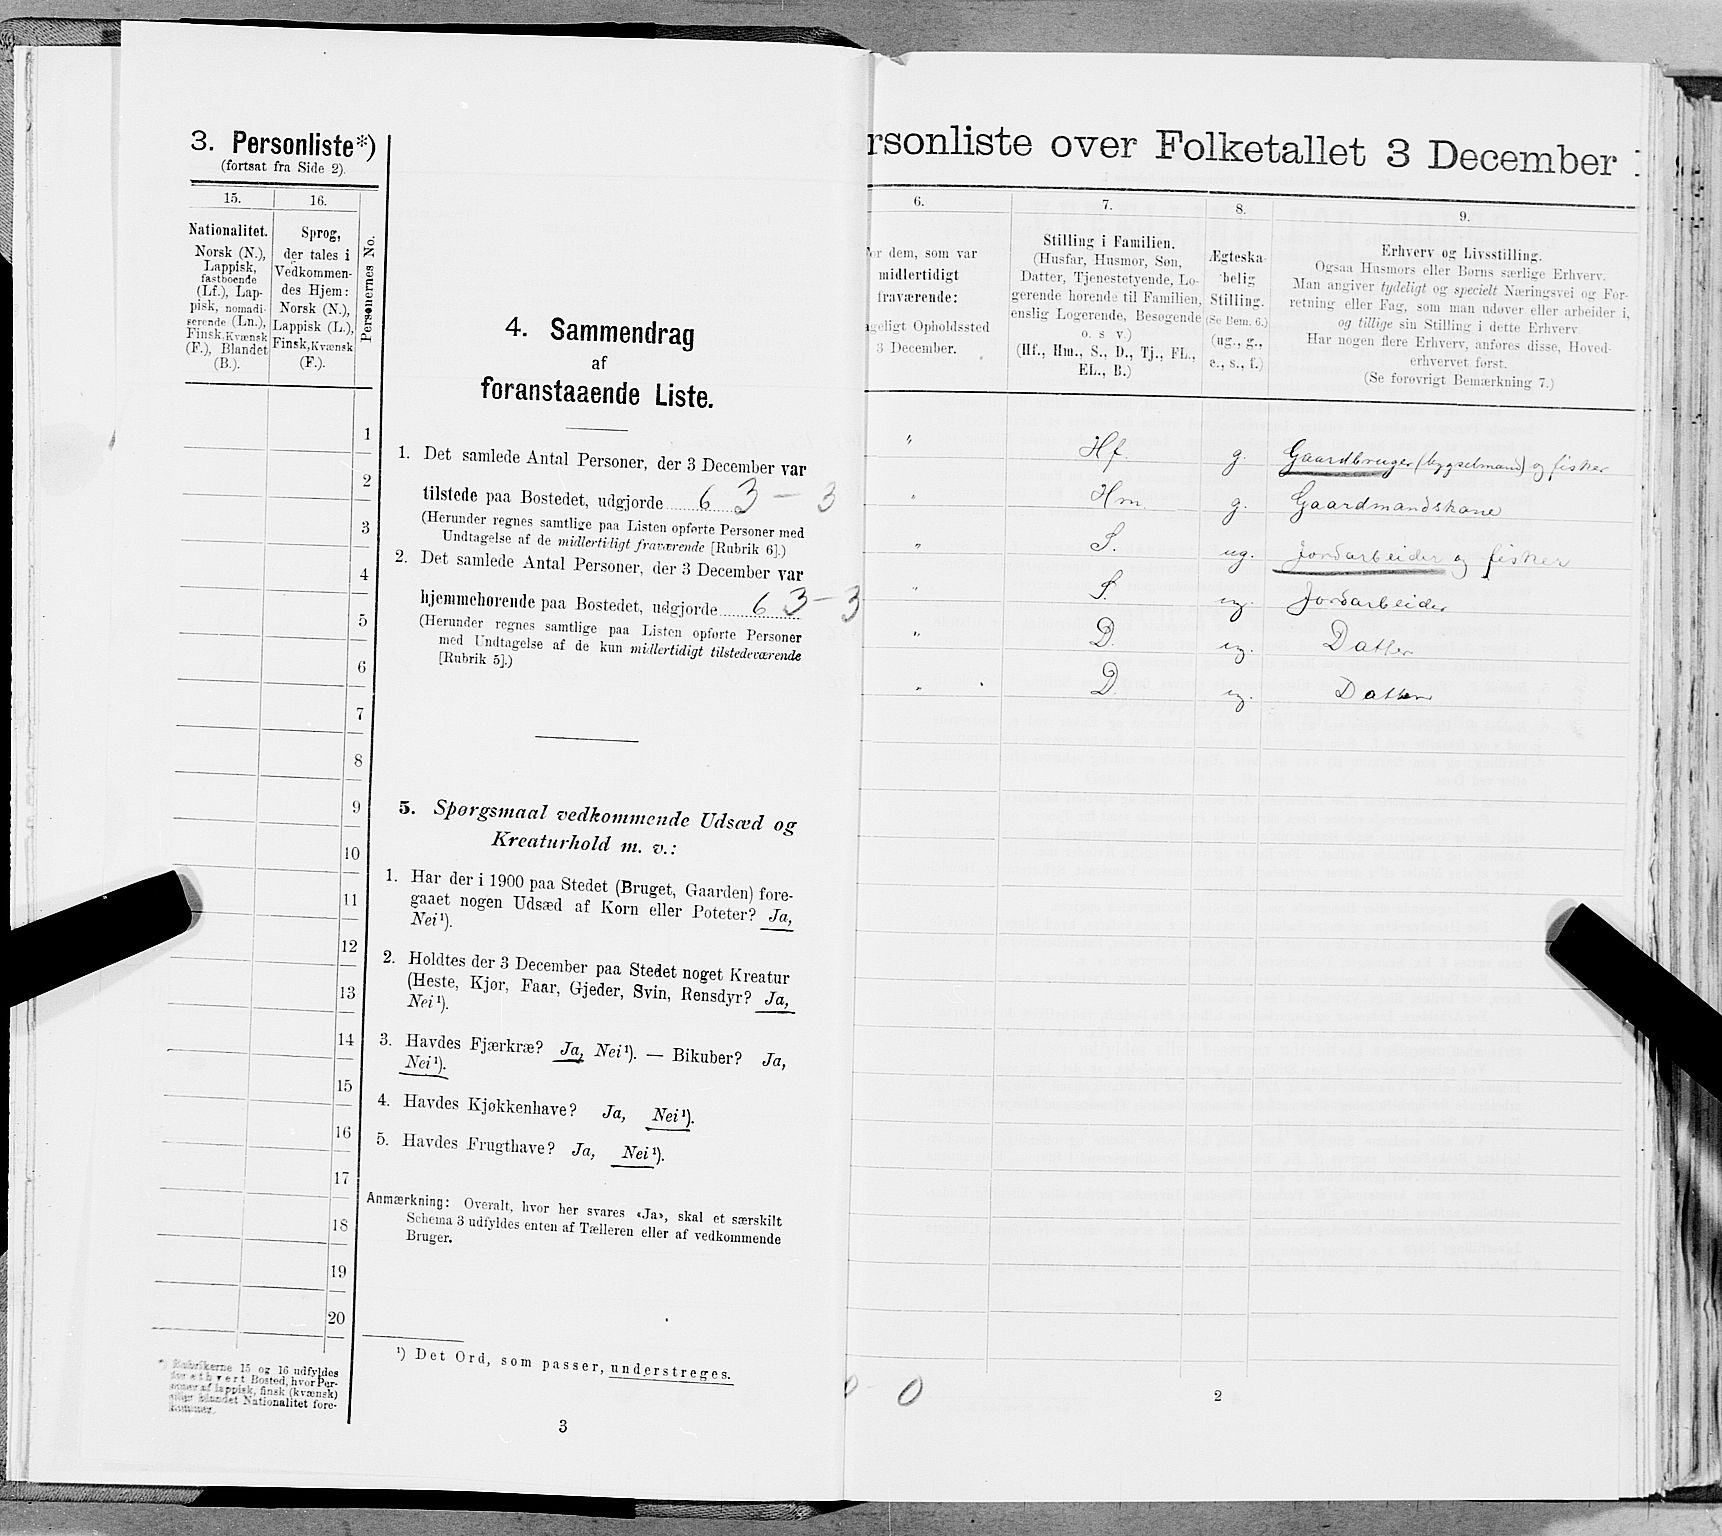 3. Personliste*)
(fortsat fra Side 2).
15.
16.
Personernes No.
Nationalitet.
Norsk (N.),
Lappisk,
fastboende
(Lf.), Lap-
pisk, nomadi-
serende (Ln.),
Finsk, Kvænsk
(F.), Blandet
(B.).
Sprog,
der tales i
Vedkommen-
des Hjem:
Norsk (N.),
Lappisk (L.),
Finsk, Kvænsk
(F.).
1
2
3
4
5
6
7
8
9
10
11
12
13
14
15
16
17
18
19
20
*) Rubrikerne 15 og 16 udfyldes
for ethvert Bosted, hvor Per-
soner af lappisk, finsk (kvænsk)
eller blandet Nationalitet fore-
kommer.
4. Sammendrag
af
foranstaaende Liste.
1. Det samlede Antal Personer, der 3 December var
tilstede paa Bostedet, udgjorde 6 3 – 3
(Herunder regnes samtlige paa Listen opførte Personer med
Undtagelse af de midlertidigt fraværende [Rubrik 6].)
2. Det samlede Antal Personer, der 3 December var
hjemmehørende paa Bostedet, udgjorde 6 3 – 3
(Herunder regnes samtlige paa Listen opførte Personer
med Undtagelse af de kun midlertidigt tilstedeværende
[Rubrik 5].)
5. Spørgsmaal vedkommende Udsæd og
Kreaturhold m. v.:
1. Har der i 1900 paa Stedet (Bruget, Gaarden) fore-
gaaet nogen Udsæd af Korn eller Poteter? Ja,
Nei¹).
2. Holdtes der 3 December paa Stedet noget Kreatur
(Heste, Kjør, Faar, Gjeder, Svin, Rensdyr? Ja,
Nei¹).
3. Havdes Fjærkræ? Ja, Nei¹). — Bikuber? Ja,
Nei¹).
4. Havdes Kjøkkenhave? Ja, Nei¹).
5. Havdes Frugthave? Ja, Nei¹).
Anmærkning: Overalt, hvor her svares «Ja», skal et særskilt
Schema 3 udfyldes enten af Tælleren eller af vedkommende
Bruger.
¹) Det Ord, som passer, understreges.
3
rsonliste over Folketallet 3 December
6.
7.
8.
9.
or dem, som var
midlertidigt
fraværende:
geligt Opholdssted
3 December.
Stilling i Familien.
(Husfar, Husmor, Søn,
Datter, Tjenestetyende, Lo-
gerende hørende til Familien,
enslig Logerende, Besøgende
o. s v.)
(Hf., Hm., S., D., Tj., FL.,
EL., B.)
Ægteska-
belig
Stilling.
(Se Bem. 6.)
(ug., g.,
e., s., f.)
Erhverv og Livsstilling.
Ogsaa Husmors eller Børns særlige Erhverv.
Man angiver tydeligt og specielt Næringsvei og For-
retning eller Fag, som man udøver eller arbeider i,
og tillige sin Stilling i dette Erhverv.
Har nogen flere Erhverv, anføres disse, Hoved-
erhvervet først.
(Se forøvrigt Bemærkning 7.)
" Hf. g. Gaardbruger (bygselmand) og fisker
" Hm. g. Gaardmandskone
" S. ug. Jordarbeider og fisker
" S. ug. Jordarbeider
" D. ug. Datter
" D. ug. Datter
0 - 0
2